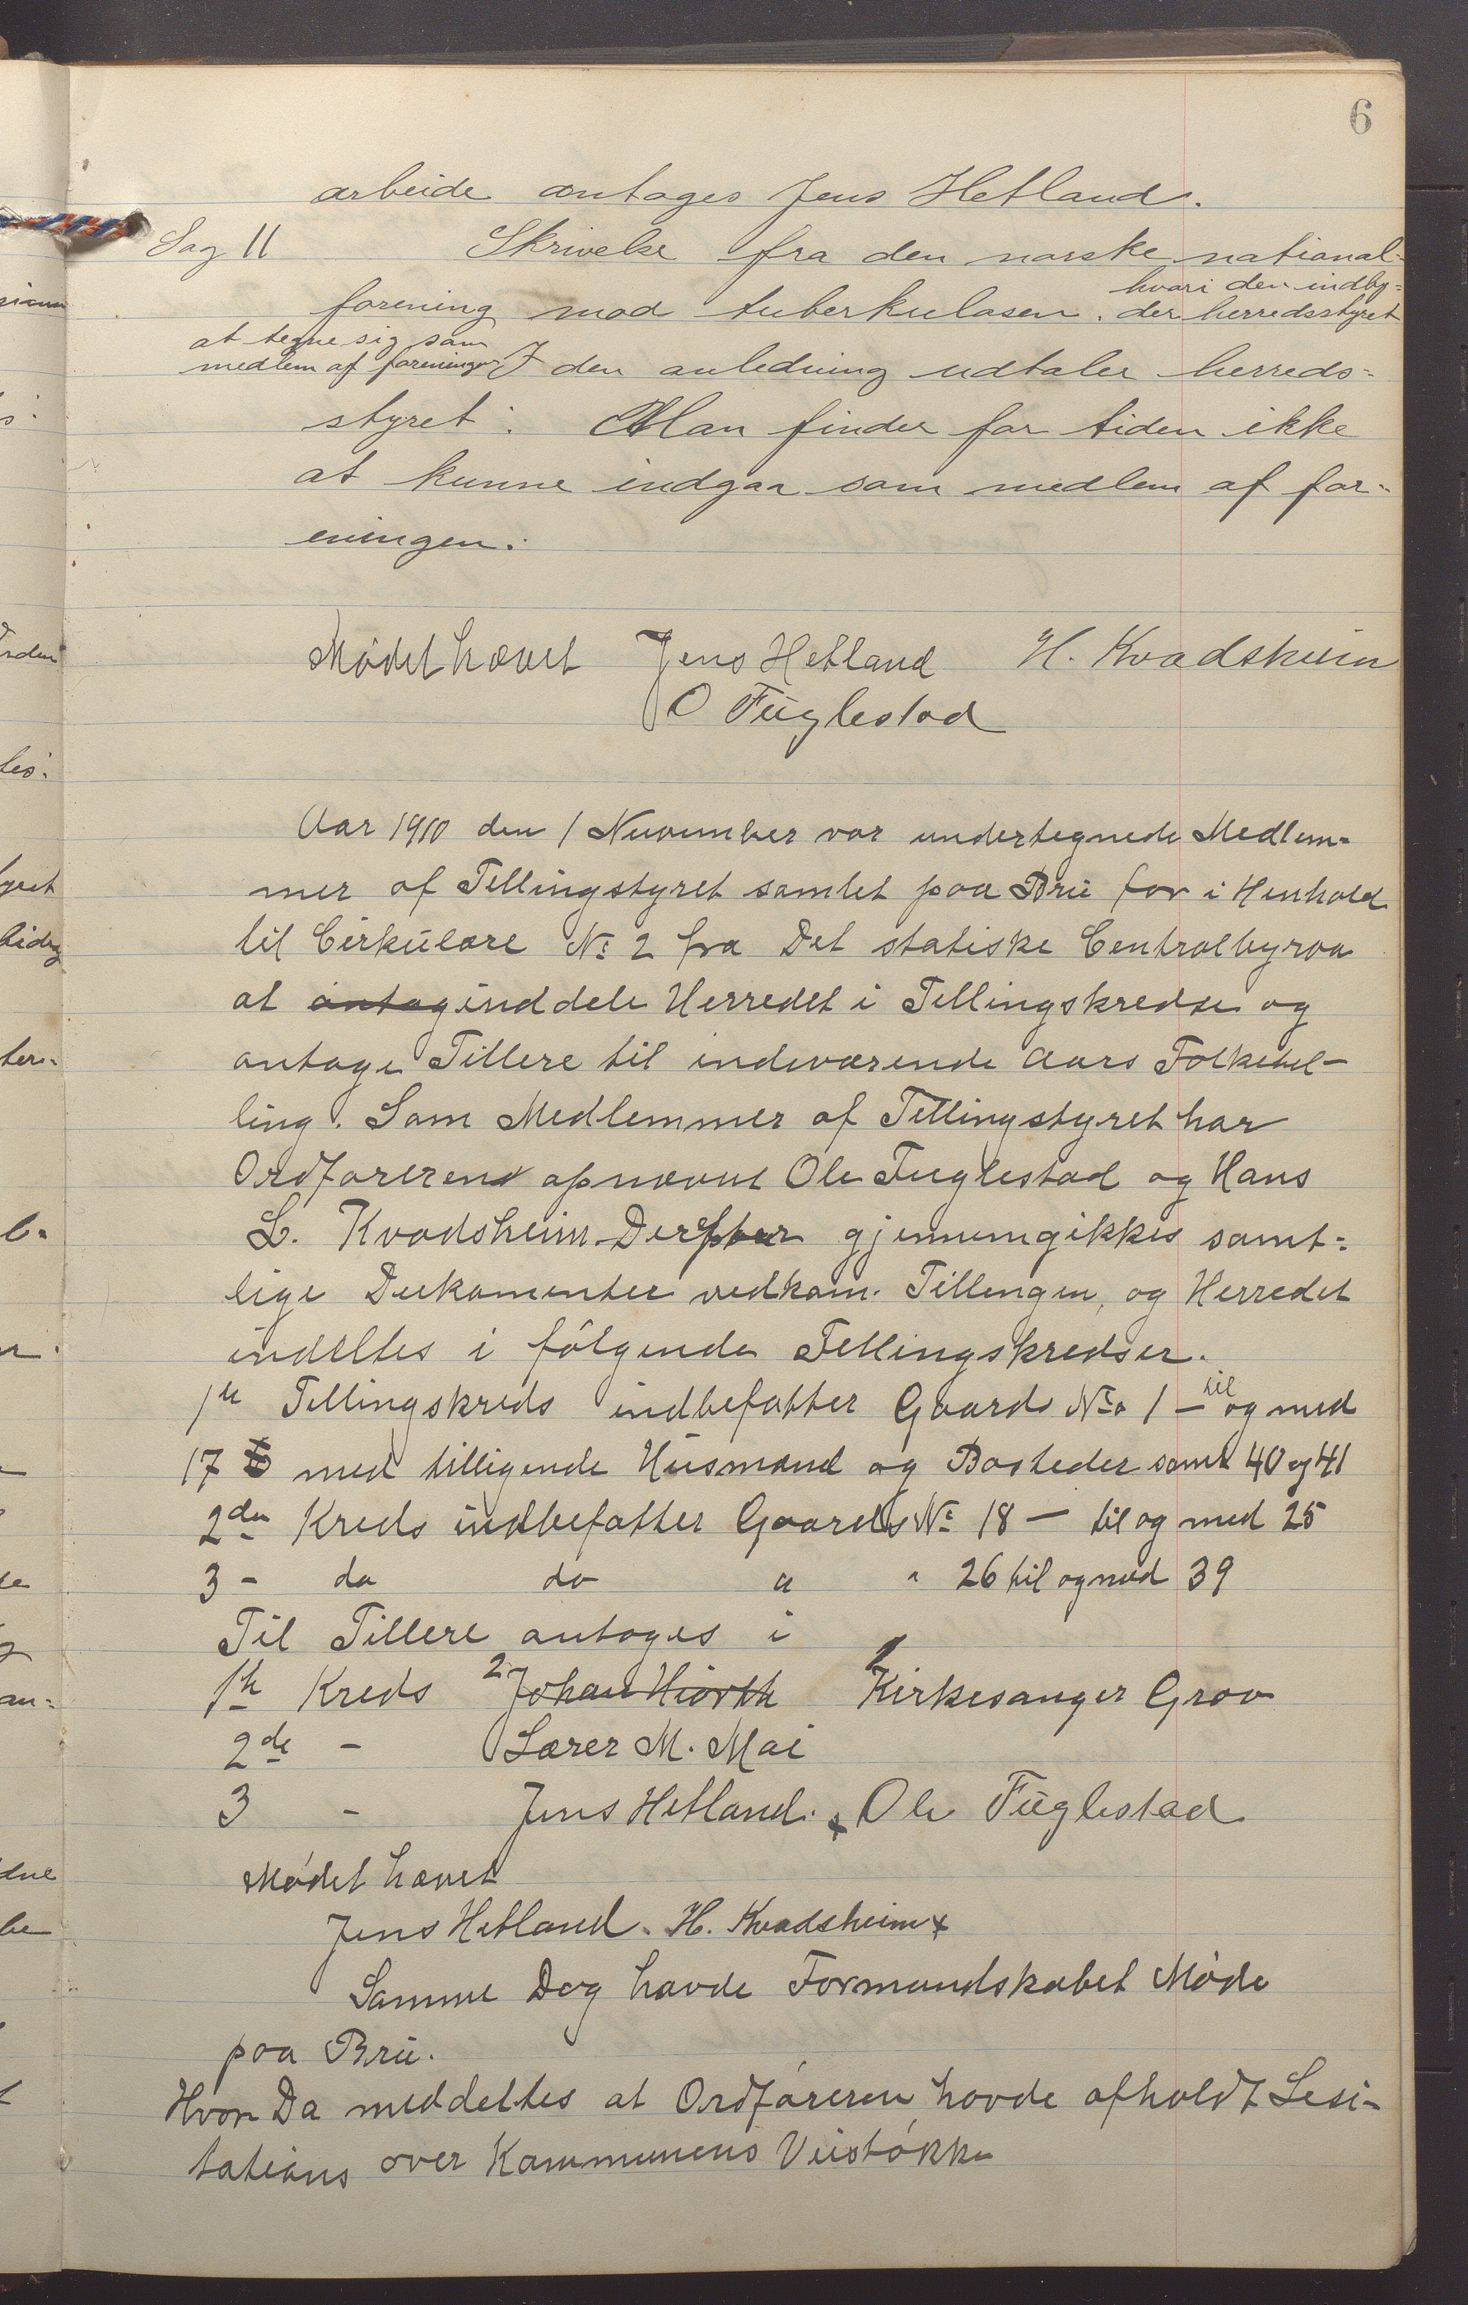 6
arbeide antages Jens Hetland.
Sag 11 Skrivelse fra den norske national-
forening mod tuberkulosen. hvori den indby=
der herredsstyret
at tegne sig som
medlem af foreningen I den anledning udtaler herreds=
styret: Man finder for tiden ikke
at kunne indgaa som medlem af for=
eningen.
Mødet hævet Jens Hetland H. Kvadsheim
O Fuglestad
Aar 1910 den 1 November var undertegnede Medlem=
mer af Tellingstyret samlet paa Bru for i Henhold
til Cirkulære No 2 fra Det statiske Centralbyraa
at antag inddele Herredet i Tellingskredse og
antage Tællere til indeværende Aars Folketel-
ling. Som Medlemmer af Tellingstyret har
Ordføreren opnævnt Ole Fuglestad og Hans
L. Kvadsheim. Derpaa gjennemgikkes samt=
lige Dokumenter vedkom. Tellingen, og Herredet
inddeltes i følgende Tellingskredser.
1ste Tellingskreds indbefatter Gaards No 1 - til og med
17 med tilligende Husmænd og Bosteder samt 40 og 41
2den Kreds indbefatter Gaards No 18 - til og med 25
3 - do do " " 26 til og med 39
Til Tellere antages i
1ste Kreds 2 Johan Hiorth 1 Kirkesanger Grov
2de - Lærer M. Mai
3 - Jens Hetland. x Ole Fuglestad
Mødet hævet
Jens Hetland. H. Kvadsheim x
Samme Dag havde Formandskabet Møde
paa Bru.
Hvor Da meddeltes at Ordføreren havde afholdt Lesi-
tations over Kommunens